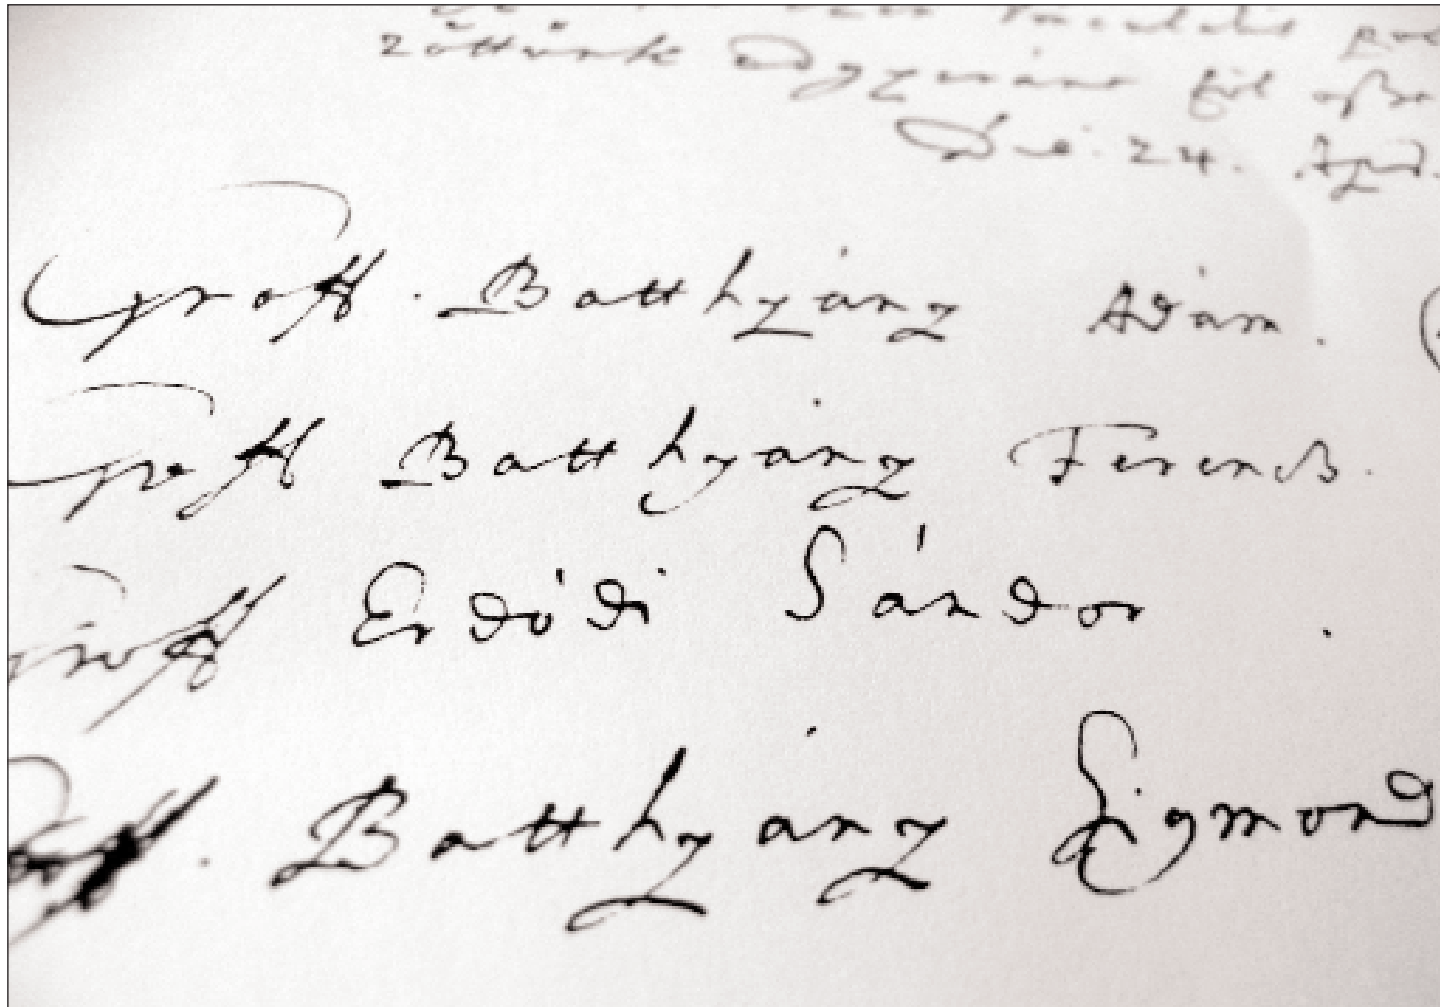 zöttünk Edgyaránt föl
Die. 24. April.
Groff. Batthyány Adám.
Groff Batthyány Ferencz.
Groff Erdődi Sándor.
Groff. Batthyány Sigmond